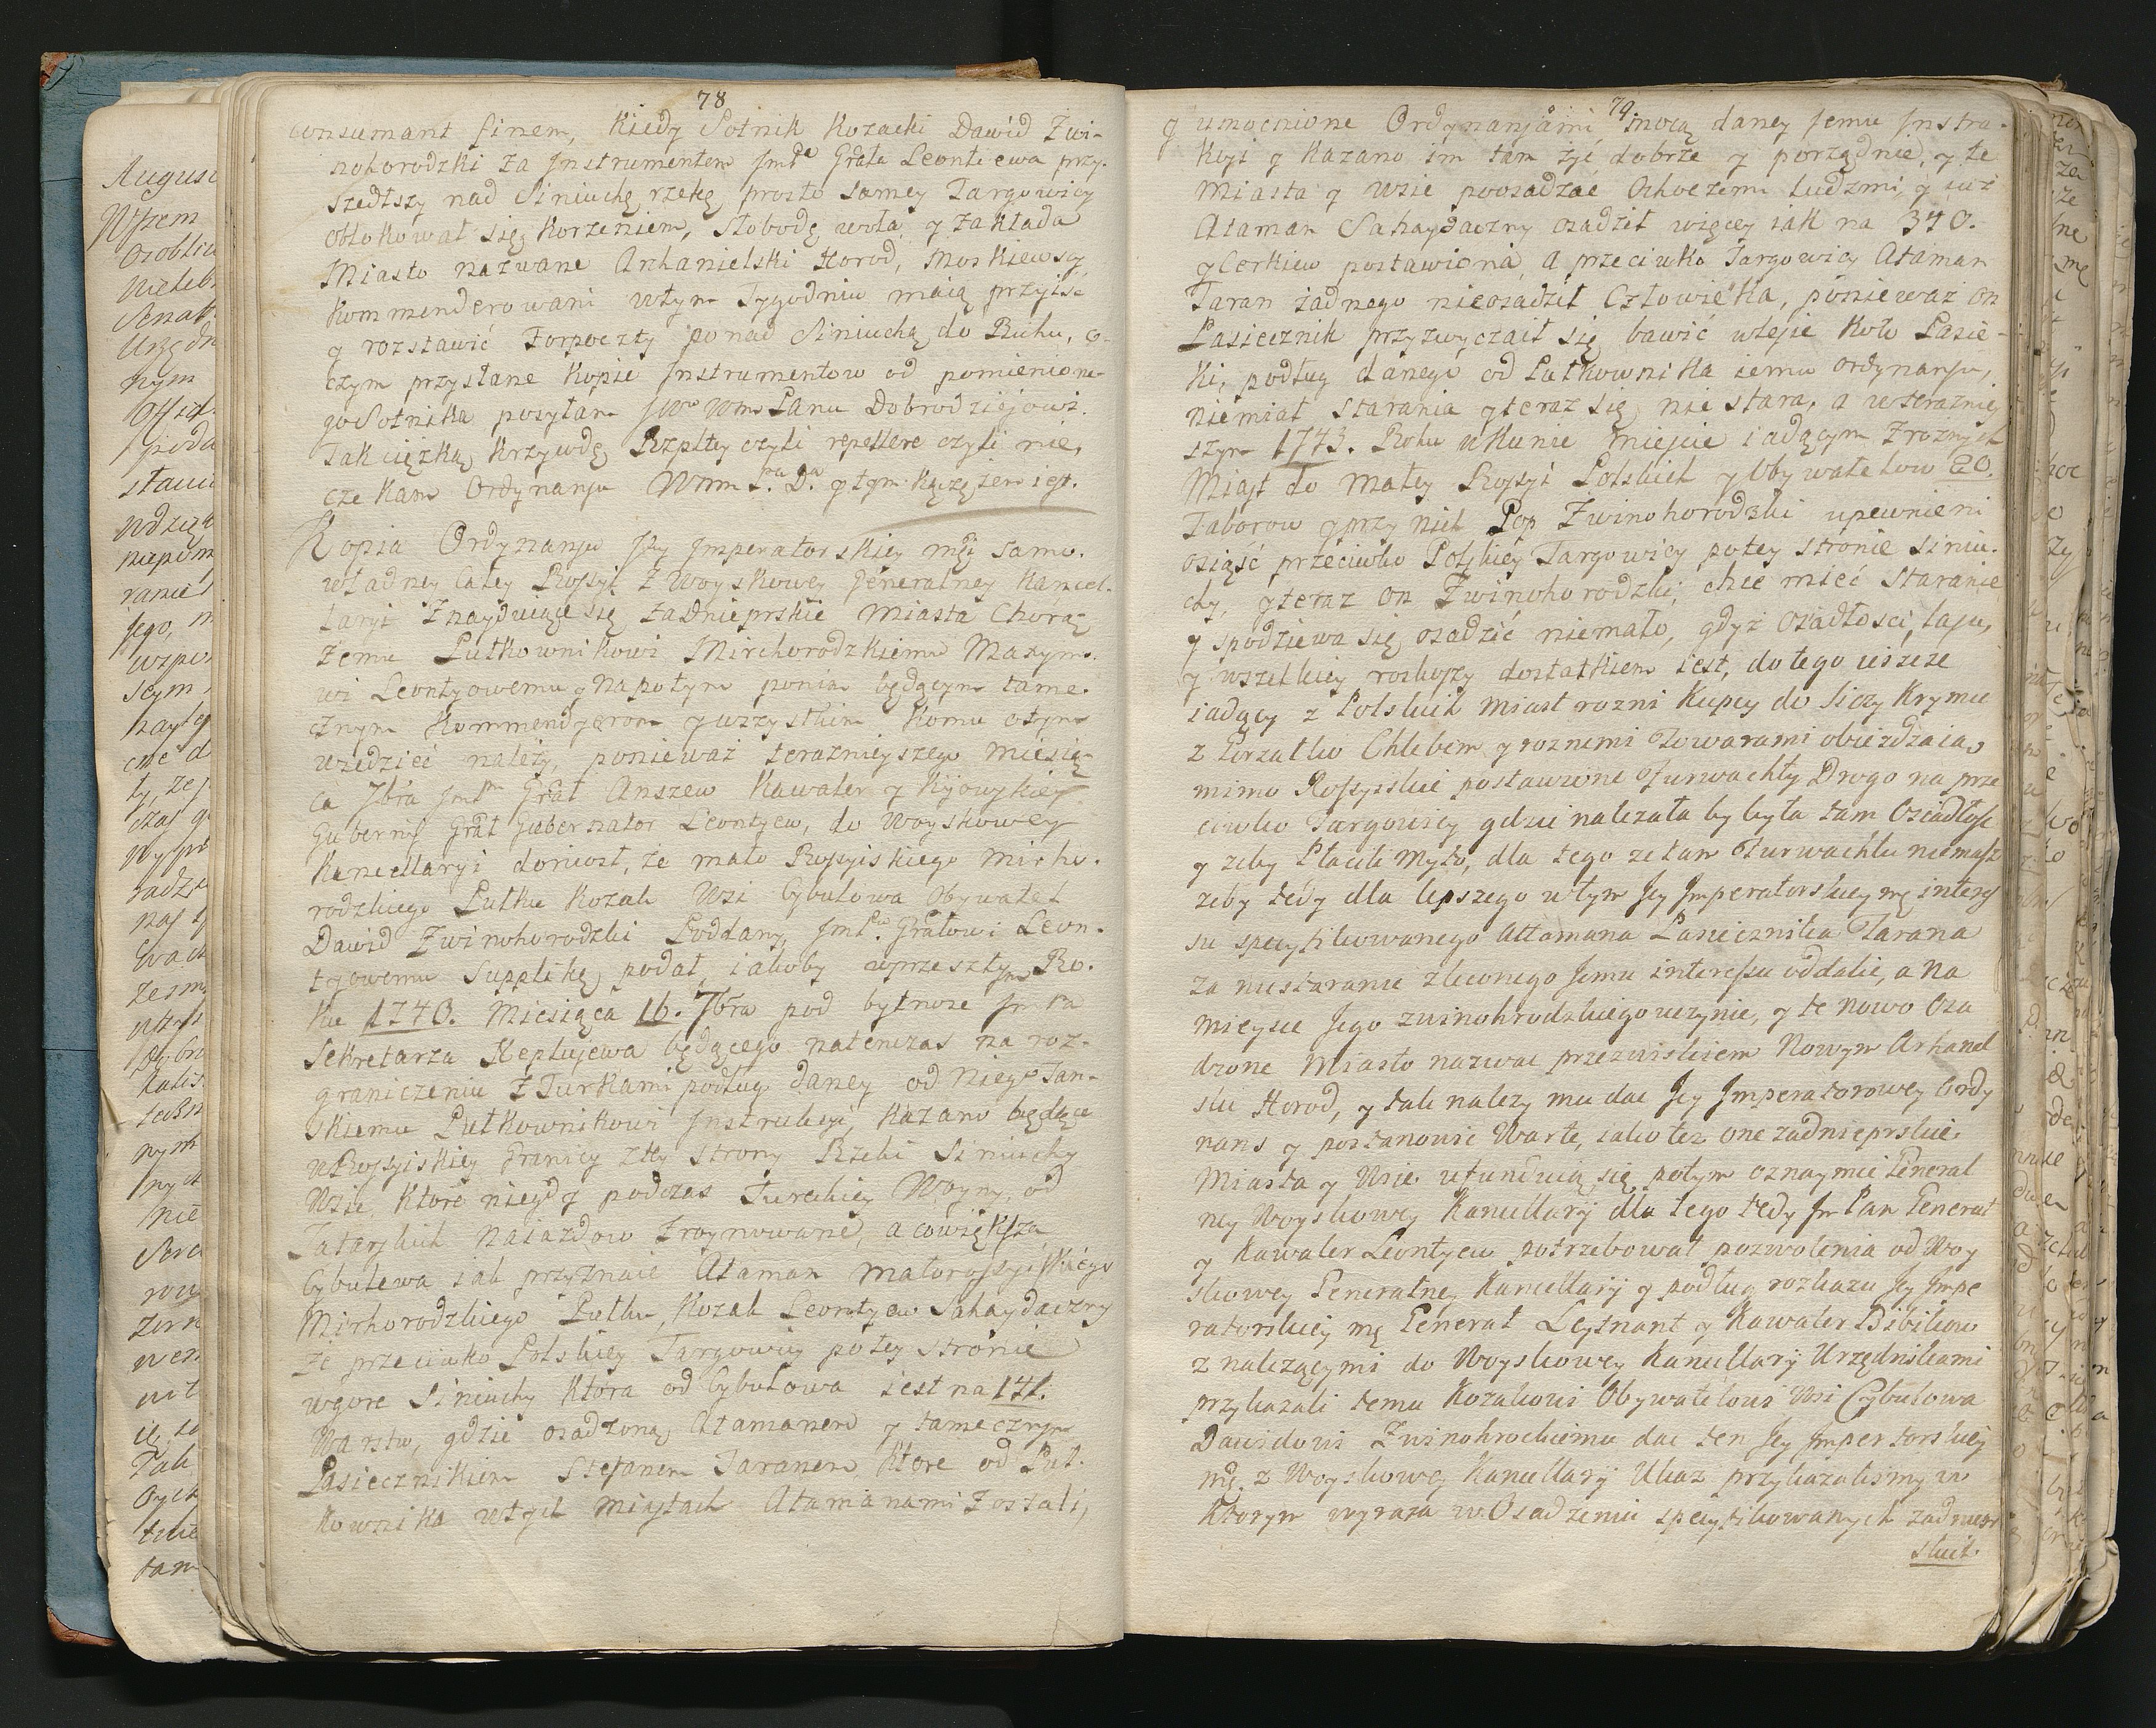 78
consumant finem, Kiedy Sotnik Kozacki Dawid Zwi-
nohorodzki za Instrumentem Jmp Grała Leontiewa przy-
szedłszy nad Siniuchę rzekę prosto samey Targowicy
oblokował się Korzeniem, Słobodę woła, y zakłada
Miasto nazwane Archanielski Horod, Moskiewscy
Kommenderowani wtym Tygodniu maią przyiść
y rozstawić Forpoczty ponad Siniuchą do Buhu, o-
czym przysłane Kopie Instrumentow od pomienione-
go Sotnika posyłam Jwo Wm Panu Dobrodziejowi.
Tak ciężką Krzywdę Rzpltey czyli repellere czyli nie,
czekam Ordynansu Wmm P. D. y tym kączę ten ięt.
Kopia Ordynansu Jey Imperatorskiey mći samo-
władney Całey Rossyi z Woyskowey Generalney Kancel-
laryi Znayduiące się zadnieprskie Miasta Chorą-
żemu Pułkownikowi Mirchorodzkiemu Maxymo-
wi Leontyowemu y napotym ponim będącym tame-
cznym Kommendyerom y wszystkim Komu otym
wiedzieć należy, ponieważ teraznieyszego miesią-
ca 7bra Jmp Grał Anszew Kawaler y Kijowskiey
Gubernij Grał Gubernator Leontyew, do Woyskowey
Kancellaryi doniosł, że mało Rossyiskiego Mirho-
rodzkiego Pułku Kozak Wsi Cybulowa Obywatel
Dawid Zwinohorodzki Poddany Jmp. Grałowi Leon-
tyowemu Supplikę podał, iakoby wprzeszłym Ro-
ku 1740. Miesiąca 16. 7bra pod bytnosc Jm Pa
Sekretarza Keplujewa będącego natenczas na roz-
graniczeniu z Turkami podług daney od niego Tan-
skiemu Pułkownikowi Instrukcyi, Kazano będące
w Rossyiskiey Granicy z tey strony Rzeki Siniuchy
Wsie, Ktore niegdy podczas Tureckiey Woyny, od
Tatarskich Naiazdow zroynowane, a cowiększa
Cybulewa iak przyznaie Ataman małorossyiskiego
Mirhorodzkiego Pułku, Kozak Leontyew Sahaydaczny
że przeciwko Polskiey Targowicy potey stronie
wgore Siniuchy Ktora od Cybulowa iest na 141.
Warstw, gdzie osadzoną Atamanem y tamecznym
Pasiecznikiem Stefanem Taranem Ktore od Puł-
kownika wtych miastach Atamanami Zostali,
79
y umocnione Ordynansami mocą daney Jemu Instru-
kcyi y Kazano im tam żyć dobrze y porządnie, y te
Miasta y wsie poosadzać Ochoczemi ludzmi, y iuż
Ataman Sahaydaczny osadził więcey iak na 340.
y Cerkiew postawiona, a przeciwko Targowicy Ataman
Taran żadnego nieosadził Człowieka, ponieważ on
Pasiecznik przyzwyczaił się bawić wlesie Koło Pasie-
ki, podług danego od Pułkownika iemu ordynansu,
niemiał starania y teraz się nie stara, a wterazniey
szym 1743. Roku wKunie miescie iadącym z roznych
Miast do małey Rossyi Polskich y Obywatelow 20.
Taborow y przy nich Pop Zwinohorodzki upewnieni
osiąść przeciwko Polskiey Targowicy potey stronie Siniu-
chy, y teraz on Zwinohorodzki chce mieć staranie
y spodziewa się osadzić niemało, gdyż osiadłości, lasu,
y wszelkiey roskoszy dostatkiem iest, dotego ieszcze
iadący z Polskich Miast rozni Kupcy do Siczy Krymu
z Gorzałko Chlebem y roznemi Towarami obieżdzaią,
mimo Rossyiskie postawione Furwachty Drogo na prze
ciwko Targowicy gdzie należała by była tam Osiadłość
y zeby Płacili myto, dla tego ze tam Furwachtu niemasz
zeby tedy dla lepszego wtym Jey Imperatorskiey mę interes
su specyfikowanego Attamana Pasiecznika Tarana
za niestaranie zleconego Jemu interessu oddalic, a na
mieysce Jego zwinohrodzkiego uczynic, y te nowo Osa
dzone Miasto nazwac przezwiskiem Nowym Arhanel
ski Horod, y tak nalezy mu dac Jey Imperatorowey Ordy
nans y postanowic Warte, iako tez one zadnieprskie
Miasta y Wsie ufunduią się, potym oznaymic General
ney Woyskowey Kancellaryi dla tego tedy Jm Pan General
y Kawaler Leontyew potrzebował pozwolenia od Woy
skowey Generalney Kancellaryi y podług rozkazu Jey Impe
ratorskiey mę General Leytnant y Kawaler Bibikow
z należącymi do Woyskowey Kancellaryi Urzędnikami
przykazali temu Kozakowi Obywatelowi Wsi Cybulowa
Dawidowi Zwinohrockiemu dac ten Jey Impertorskiey
mę. z Woyskowey Kancellaryi Ukaz przykazalismy w
Ktorym wyraza w Osadzeniu specyfikowanych zadniepr
skich.